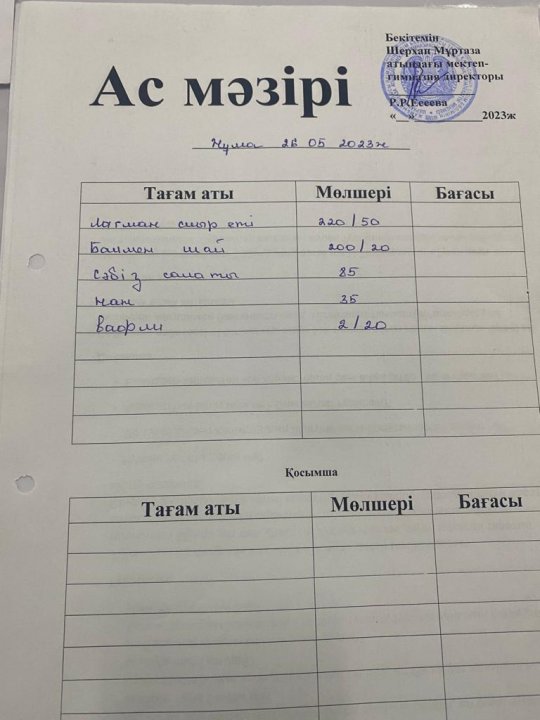 Бекітемін
Шерхан Мұртаза
атындағы мектеп-
гимназия директоры
Р.Р.Есеева
«__»____________2023ж
Ас мәзірі
Жұма 26 05 2023ж
Тағам аты Мөлшері Бағасы
Лагман сиыр еті 220/50
Балмен шай 200/20
сәбіз салаты 85
нан 35
вафли 2/20
Қосымша
Тағам аты Мөлшері Бағасы